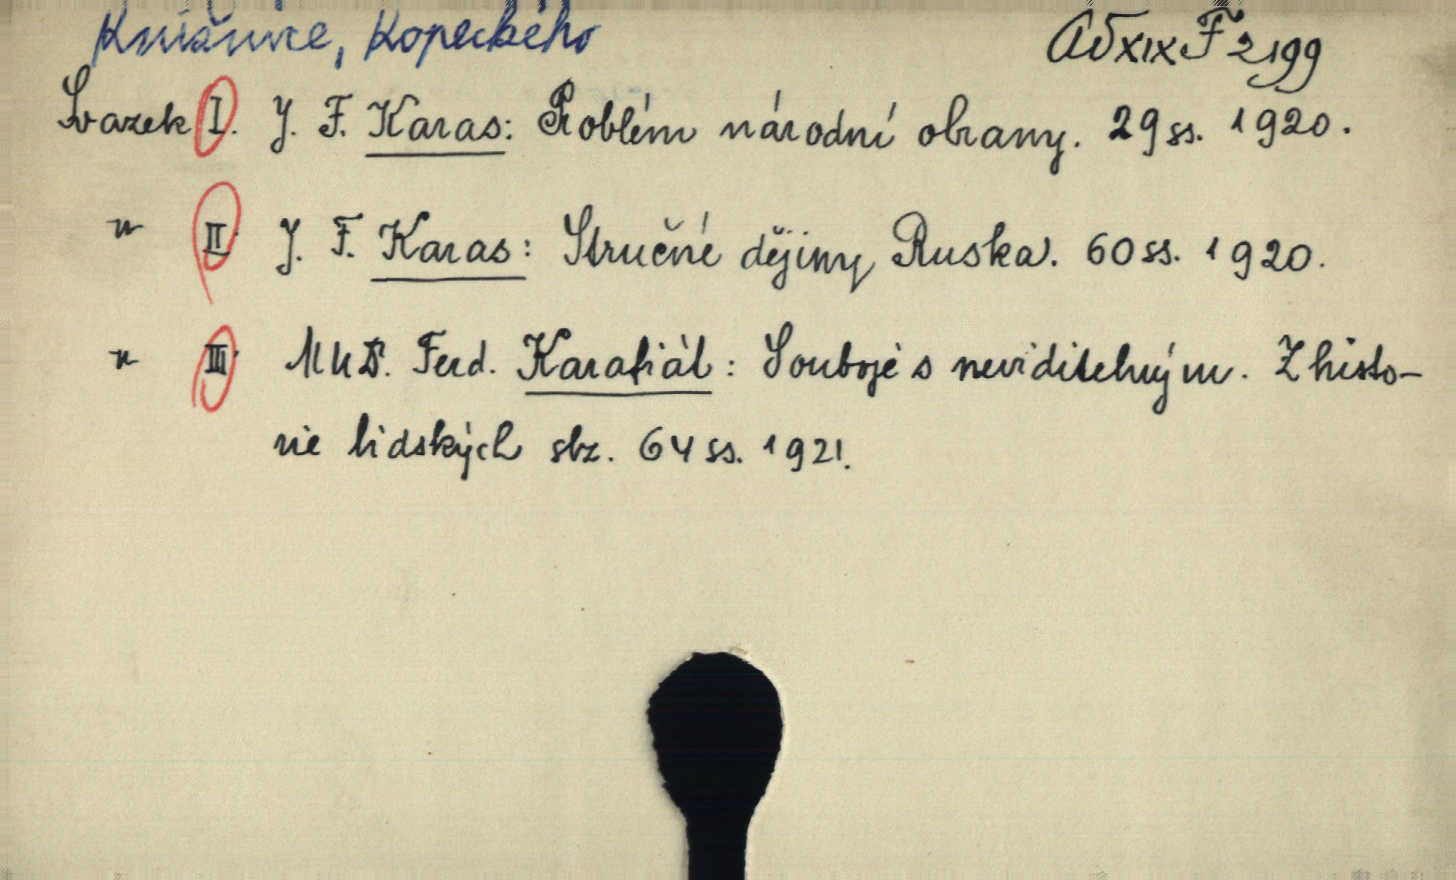 Knižnice, Kopeckého
Ad XIX F 2199
Svazek I. J. F. Karas: Problém národní obrany. 29 ss. 1920.
" II J. F. Karas: Stručné dějiny Ruska. 60 ss. 1920.
" III MUD. Ferd. Karafiát: Souboje s neviditelným. Z histo-
rie lidských slz. 64 ss. 1921.